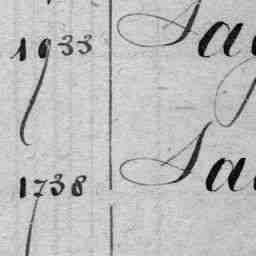 1933 Sag
1738 Sa